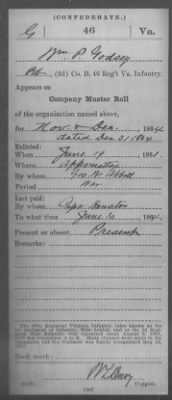 (CONFEDERATE.)
G 46 Va.
Wm. P. Godsey
Pvt., (2d) Co. B, 46 Reg't Va. Infantry.
Appears on
Company Muster Roll
of the organization named above,
for Nov. & Dec., 1864
dated Dec 31 1864
Enlisted:
When June 19, 186
Where Appomattox
By whom Geo W. Abbitt
Period War
Last paid:
By whom Capt.
To what time June 30, 1864
Present or absent Present
Remarks:
Book mark:
Copyist.